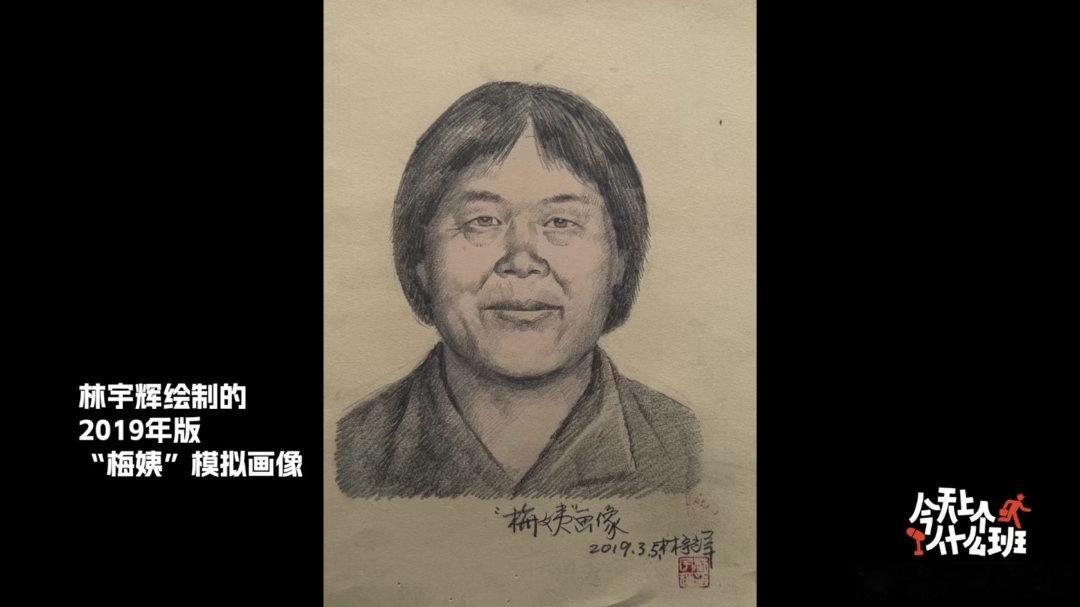 林宇辉绘制的
2019年版
“梅姨”模拟画像
“梅姨”画像
2019.3.5.林宇辉
今天上个
什么班